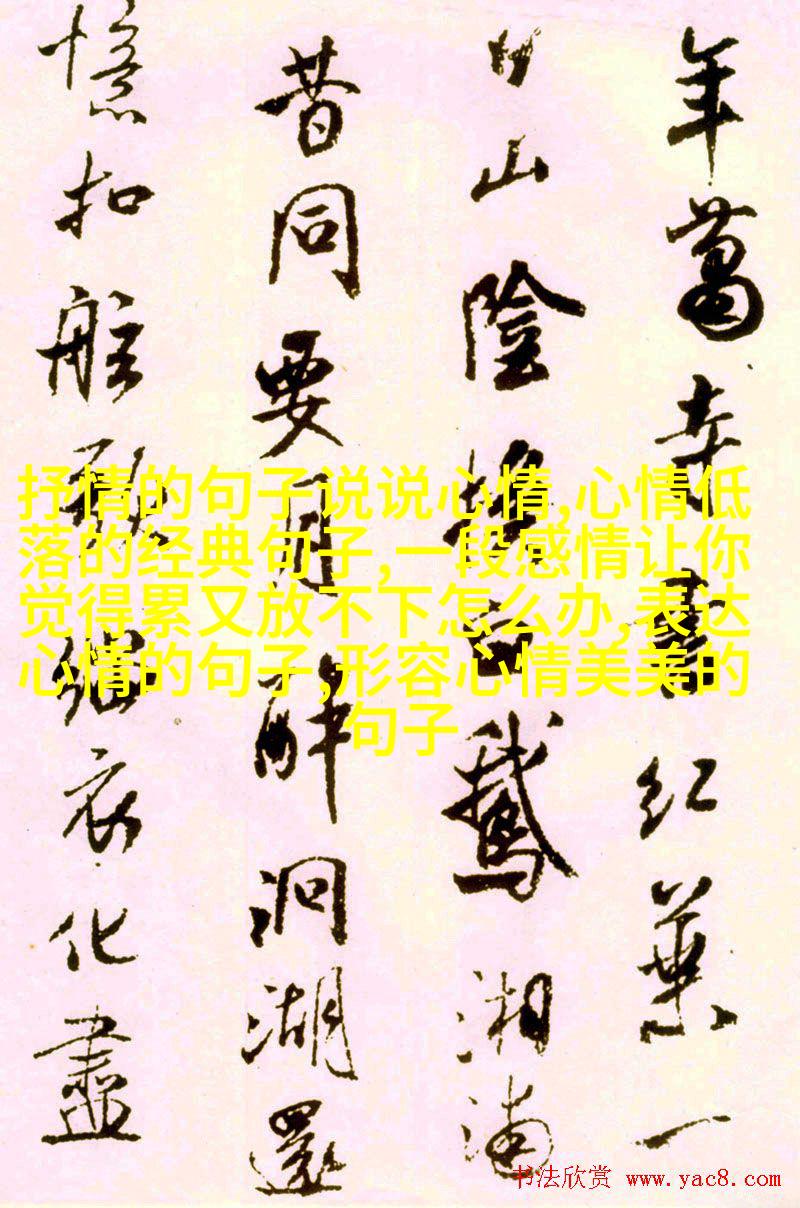 年蕭寺書紅葉一
日山陰換白鵝湘浦
昔同要月醉洞湖還
憶扣舷歌緇衣化盡
抒情的句子说说心情,心情低
落的经典句子,一段感情让你
觉得累又放不下怎么办,表达
心情的句子,形容心情美美的
句子
书法欣赏 www.yac8.com